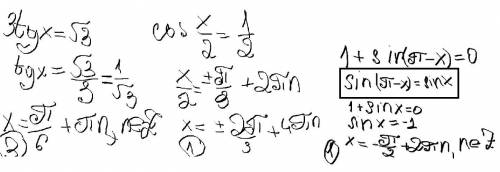 3tgx=√3
tgx=√3/3=1/√3
x=π/6+πn, n∈Z
3)
cos x/2=1/2
x/2=±π/3+2πn
x=±2π/3+4πn
1)
1+sin(π-x)=0
sin(π-x)=sinx
1+sinx=0
sinx=-1
x=-π/2+2πn, n∈Z